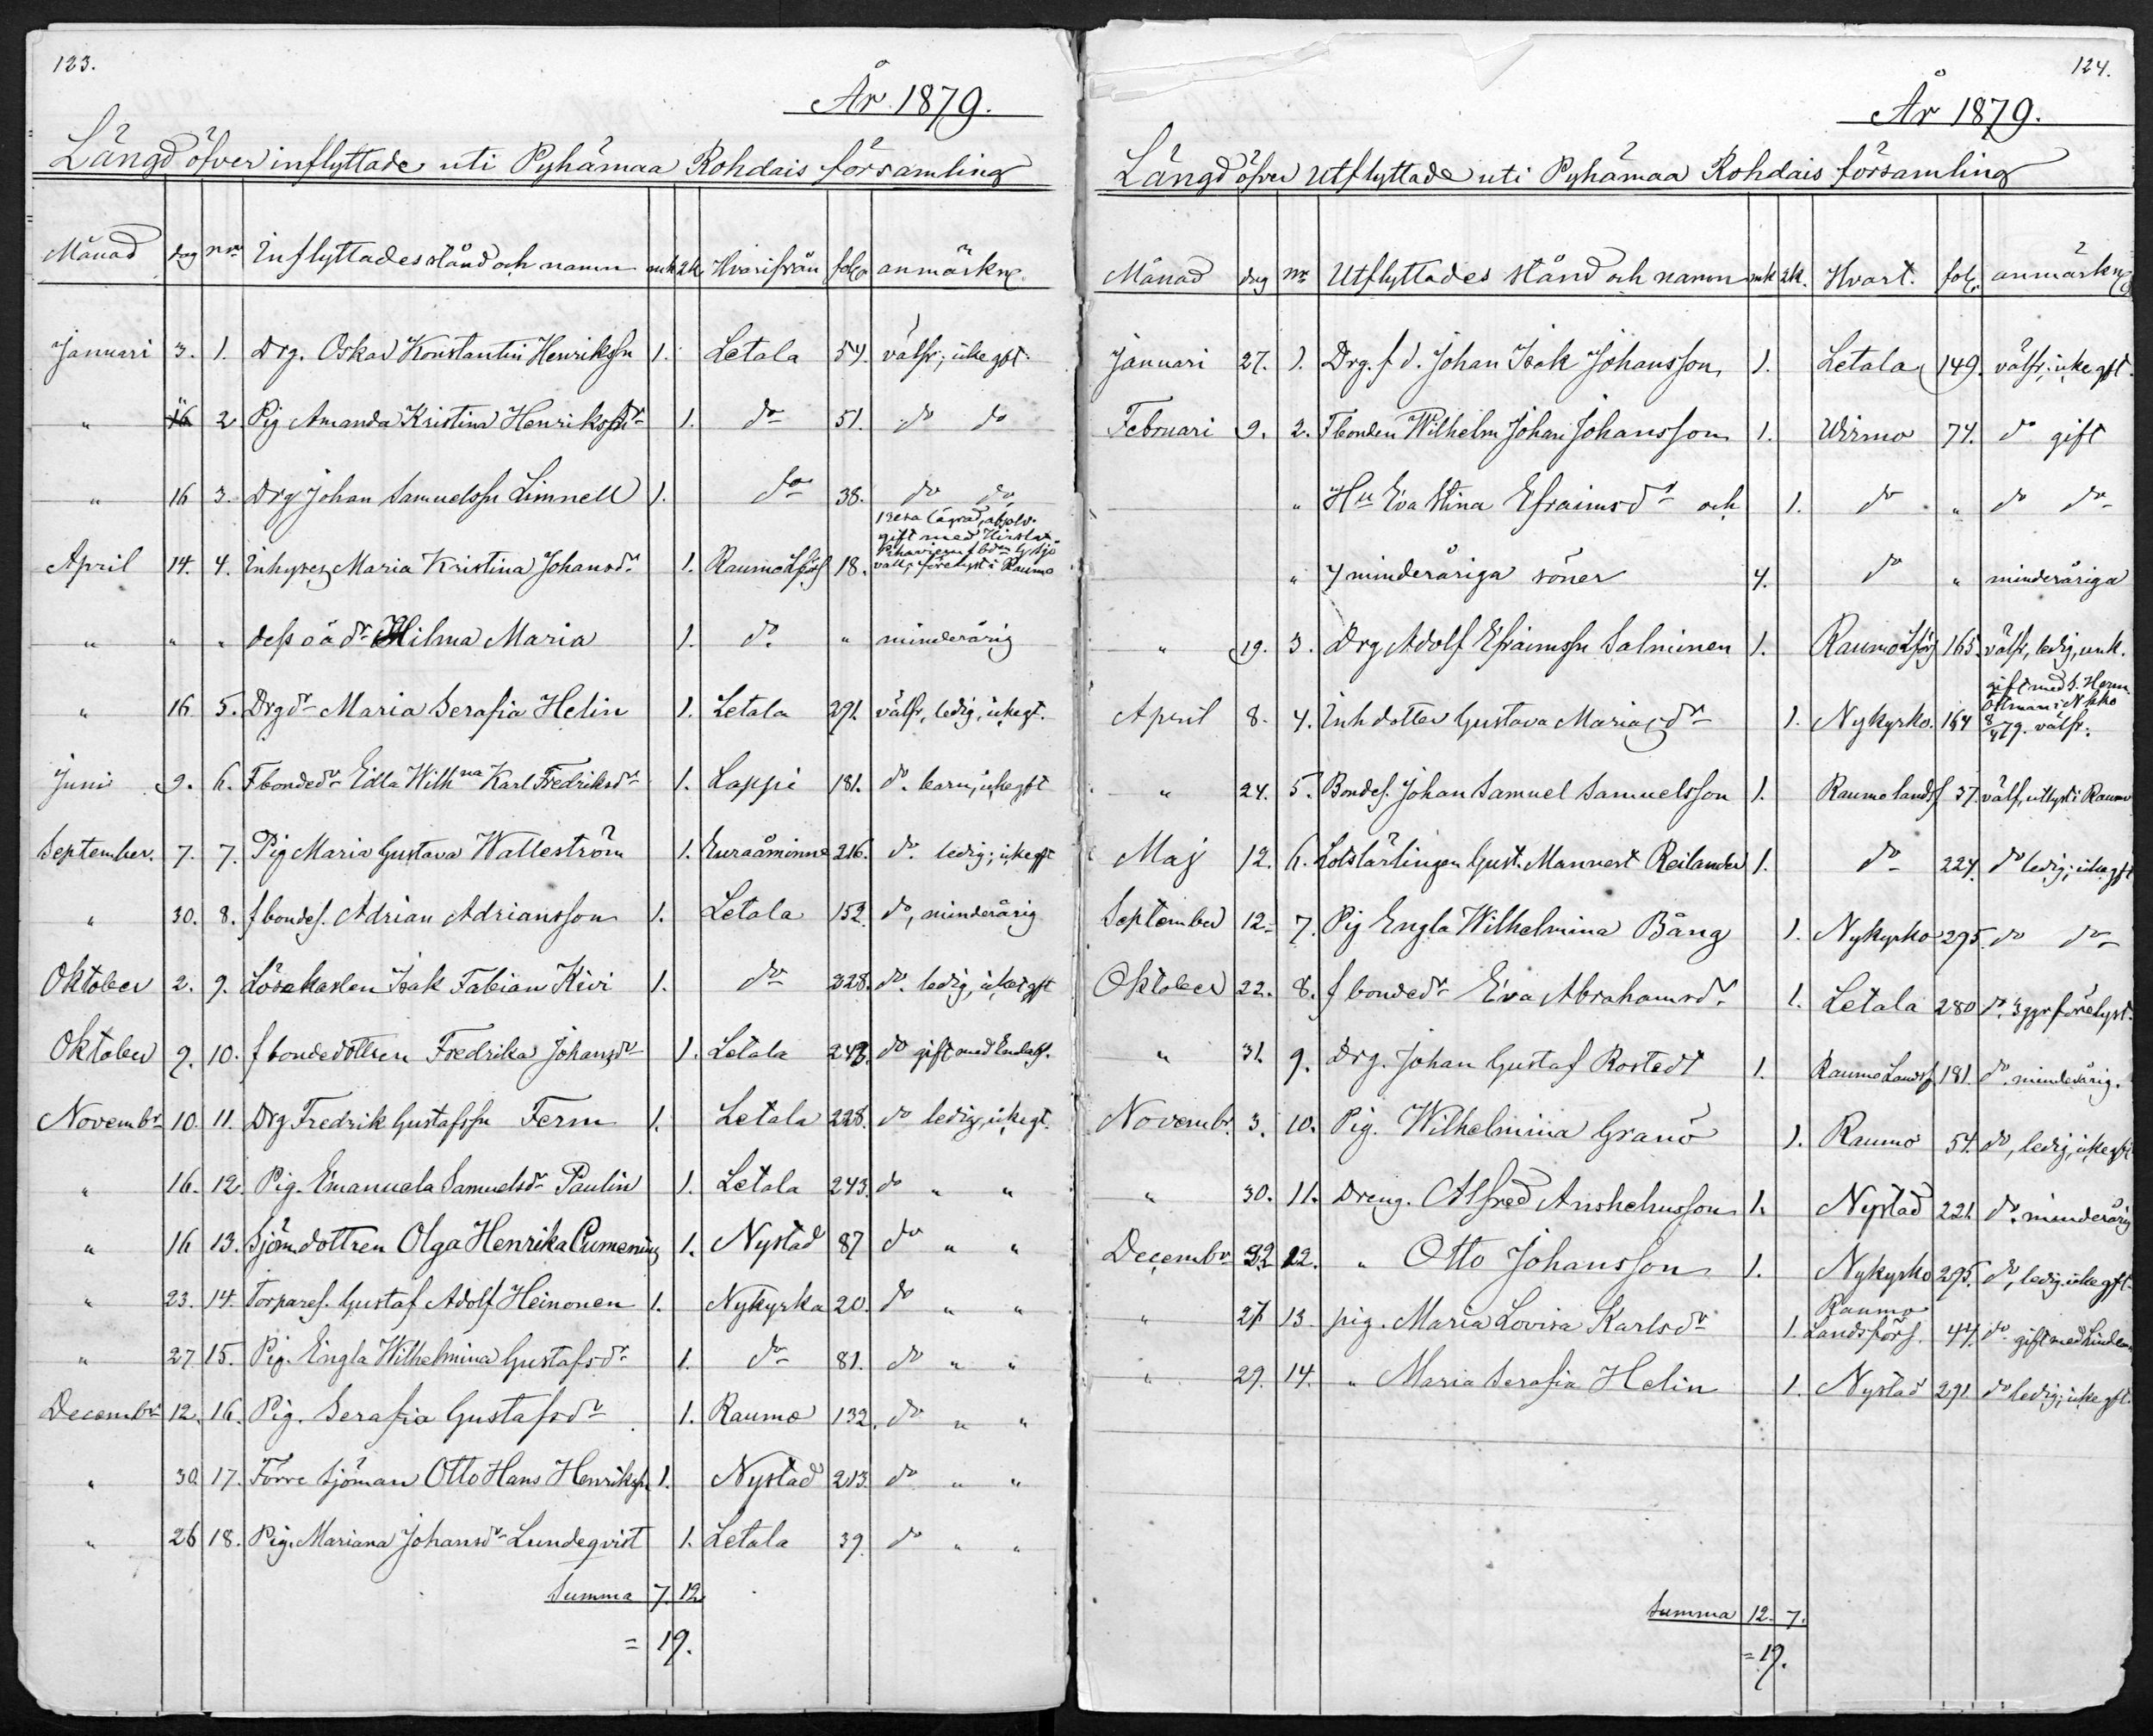 123.
År 1879.
Längd öfver inflyttade uti Pyhämaa Rohdais församling
Månad dag nr Inflyttades stånd och namn mk 2k. Hvarifrån fol. anmärkn.
Januari 3. 1. Drg. Oskar Konstantin Henrikssn 1. Letala 54. välfr; icke gift
" 16 2 Pig Amanda Kristina Henriksdr 1. do 51. do do
" 16 3. Drg Johan Samuelssn Limnell 1. do 38. do do
gift med
April 14. 4. Inhyses Maria Kristina Johansdr 1. Raumo Lförs 18. förelyst i Raumo
" " " dess oä dr Hilma Maria 1. do. " minderårig
" 16 5. Drgdr Maria Serafia Helin 1. Letala 291. välfr, ledig, icke gt.
Juni 9. 6. Fbondedr Edla Wilhna Karl Fredriksdr 1. Lappi 181. do. barn, icke gft
September. 7. 7. Pig Maria Gustava Walleström 1. Euraåminne 216. do. ledig; icke gft
" 30. 8. fbondes. Adrian Adriansson 1. Letala 152. do, minderårig
Oktober 2. 9. Lösekarlen Isak Fabian Kivi 1. do 328. do. ledig, icke gft
Oktober 9. 10. fbondedottren Fredrika Johansdr 1. Letala 248. do gift med
Novembr 10. 11. Drg Fredrik Gustafssn Ferm 1. Letala 228. do ledig, icke gt.
" 16. 12. Pig. Emanuela Samuelsdr Paulin 1. Letala 243. do " "
" 16 13. Sjöm.dottren Olga Henrika Cumenius 1. Nystad 87 do " "
" 23. 14. Torpares. Gustaf Adolf Heinonen 1. Nykyrka 20. do " "
" 27 15. Pig. Engla Wilhelmina Gustafsdr 1. do 81. do " "
Decembr 12. 16. Pig. Serafia Gustafsdr 1. Raumo 132. do " "
" 30. 17. Förre Sjöman Otto Hans Henrikssn 1. Nystad 213. do " "
" 26 18. Pig. Mariana Johansdr Lundeqvist 1. Letala 39. do " "
Summa 7. 12.
= 19.
124.
År 1879.
Längd öfver Utflyttade uti Pyhämaa Rohdais församling
Månad dag nr Utflyttades stånd och namn mk 2k. Hvart. fol. anmärkn
Januari 27. 1. Drg. f d. Johan Isak Johansson 1. Letala 149. välfr; icke gft.
Februari 9. 2. Fbonden Wilhelm Johan Johansson 1. Wirmo 74. do gift
" Hu Eva Stina Efraimsdr och 1. do " do do
" 4 minderåriga söner 4. do " minderåriga
" 19. 3. Drg Adolf Efraimssn Salminen 1. Raumo Lförs 165. välfr, ledig, unk.
gift med
April 8. 4. Inh dotter Gustava Mariasdr 1. Nykyrko. 164 8/4 79. välfr.
" 24. 5. Bondes. Johan Samuel Samuelsson 1. Raumo landsf 37. välf, utlyst i Raumo
Maj 12. 6. Lotslärlingen Gust. Mannert Reilander 1. do 224. do ledig; icke gft
September 12. 7. Pig Engla Wilhelmina Bång 1. Nykyrko 295. do do
Oktober 22. 8. f bondedr Eva Abrahamsdr 1. Letala 280 do. 3 ggr förelyst.
" 31. 9. Drg. Johan Gustaf Rostedt 1. Raumo Landsf 181. do. minderårig.
Novembr. 3. 10. Pig. Wilhelmina Granö 1. Raumo 54. do, ledig, icke gft
" 30. 11. Dreng. Alfred Anshelmsson 1. Nystad 221. do. minderårig
Decembr 22 12. " Otto Johansson 1. Nykyrko 275. do, ledig. icke gft.
" 27 13. pig. Maria Lovisa Karlsdr 1. Raumo Landsförs. 44. do. gift med
" 29. 14. " Maria Serafia Helin 1. Nystad 291. do ledig; icke gft.
Summa 12. 7.
= 19.